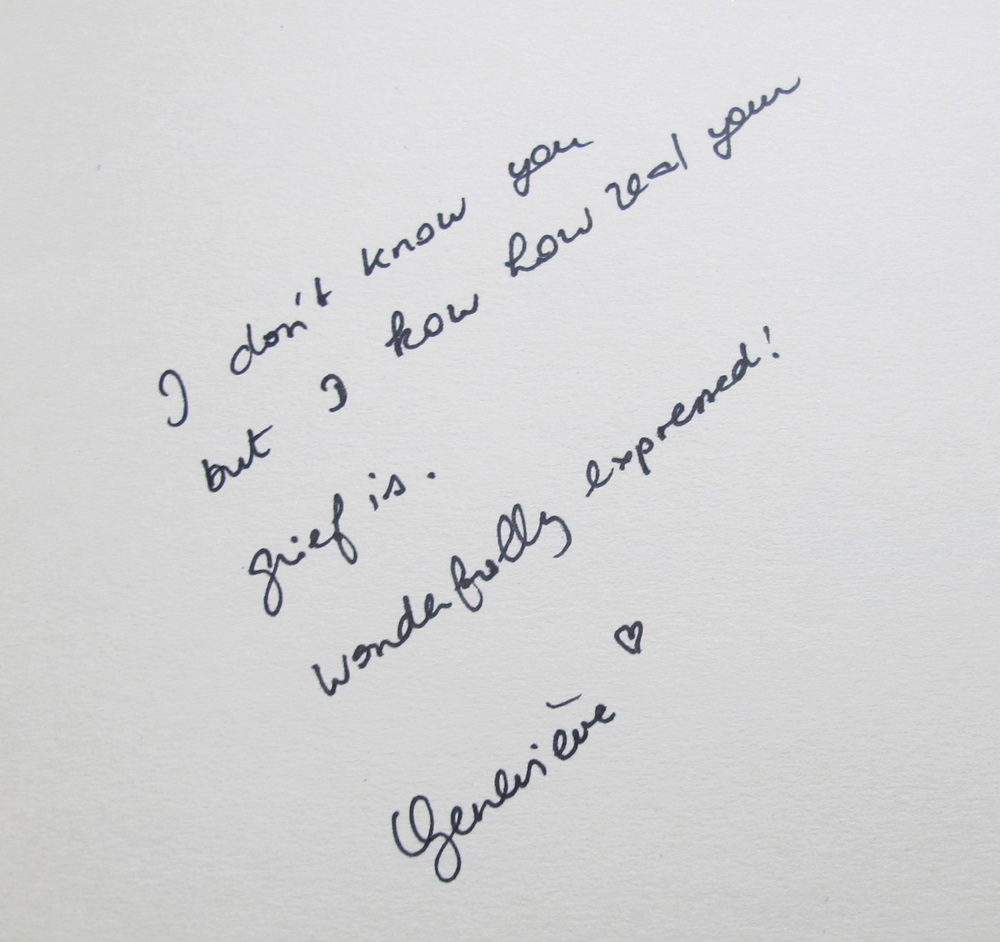 I don't know you
but I kow how real your
grief is.
wonderfully expressed!
♡
Geneviève